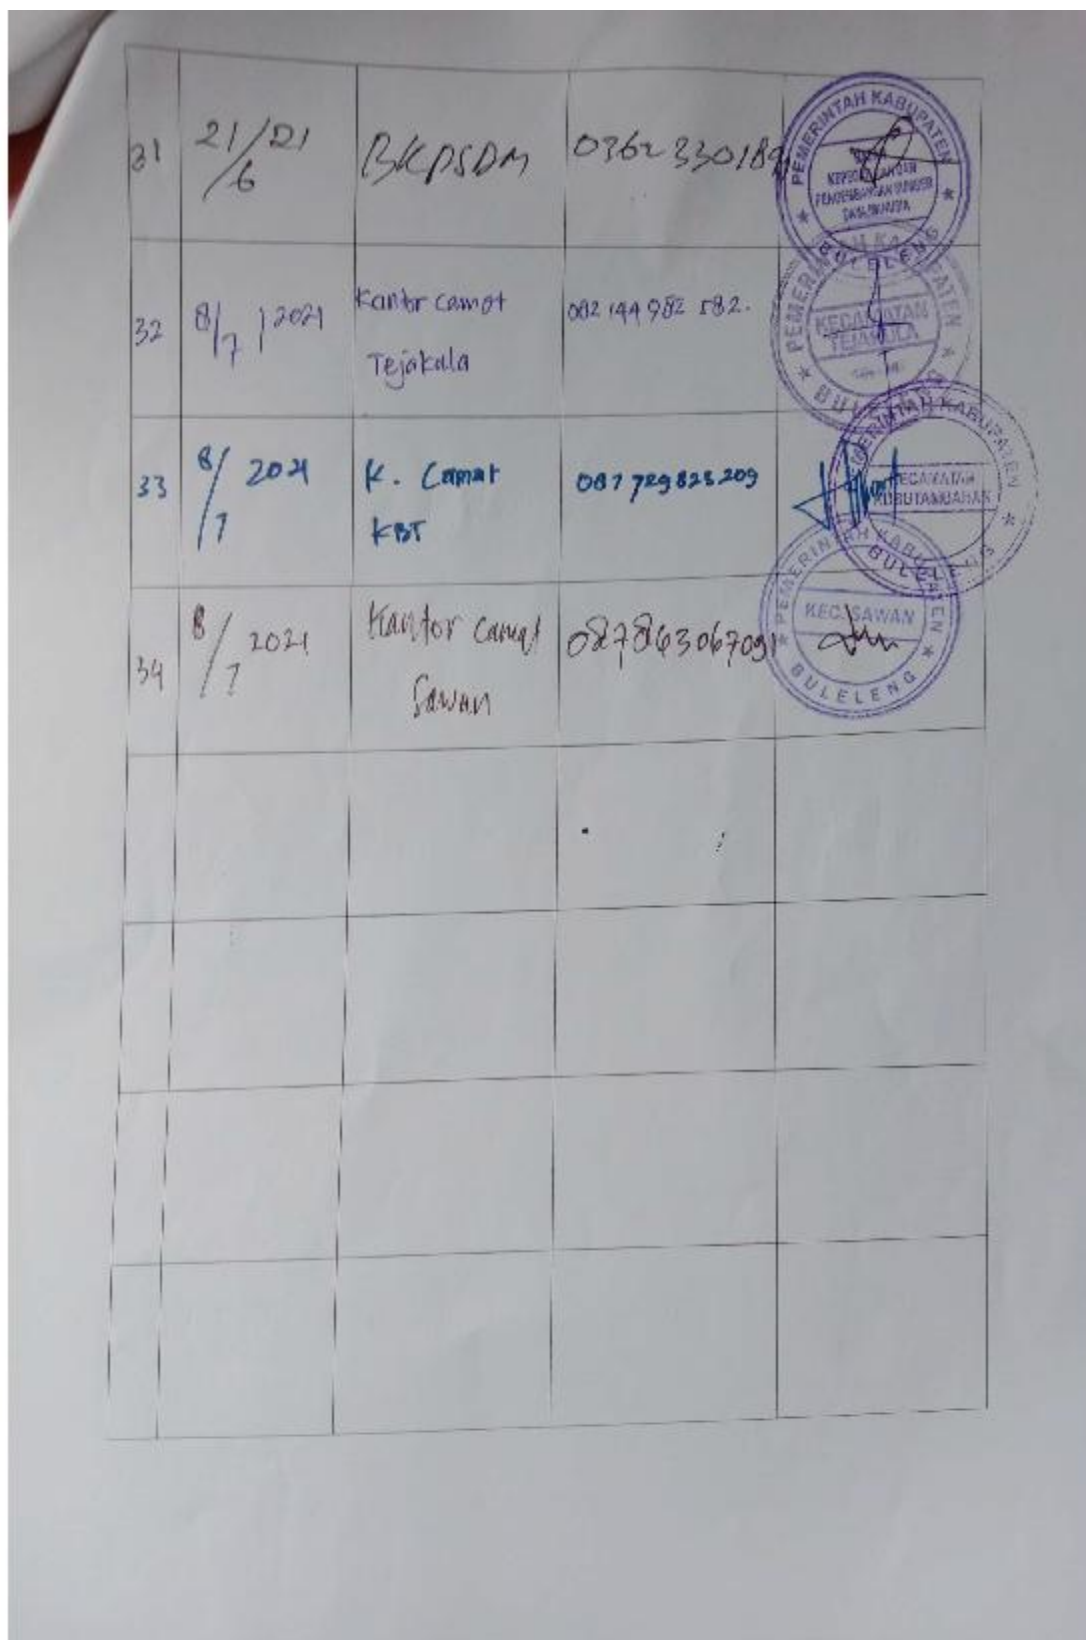 31 21/6/21 BKPSDM 0362 330189
PEMERINTAH KABUPATEN
PENGEMBANGAN SUMBER
BULELENG
32 8/7/2021 Kantor camat 082 144 982 582.
Tejakula
PEMERINTAH KABUPATEN
KECAMATAN
TEJAKULA
BULELENG
33 8/7 2021 K. Camat 087 729 825 209
KBT
PEMERINTAH KABUPATEN
KECAMATAN
KUBUTAMBAHAN
BULELENG
34 8/7 2021 Kantor camat 087863067091
Sawan
PEMERINTAH KABUPATEN
KEC. SAWAN
BULELENG